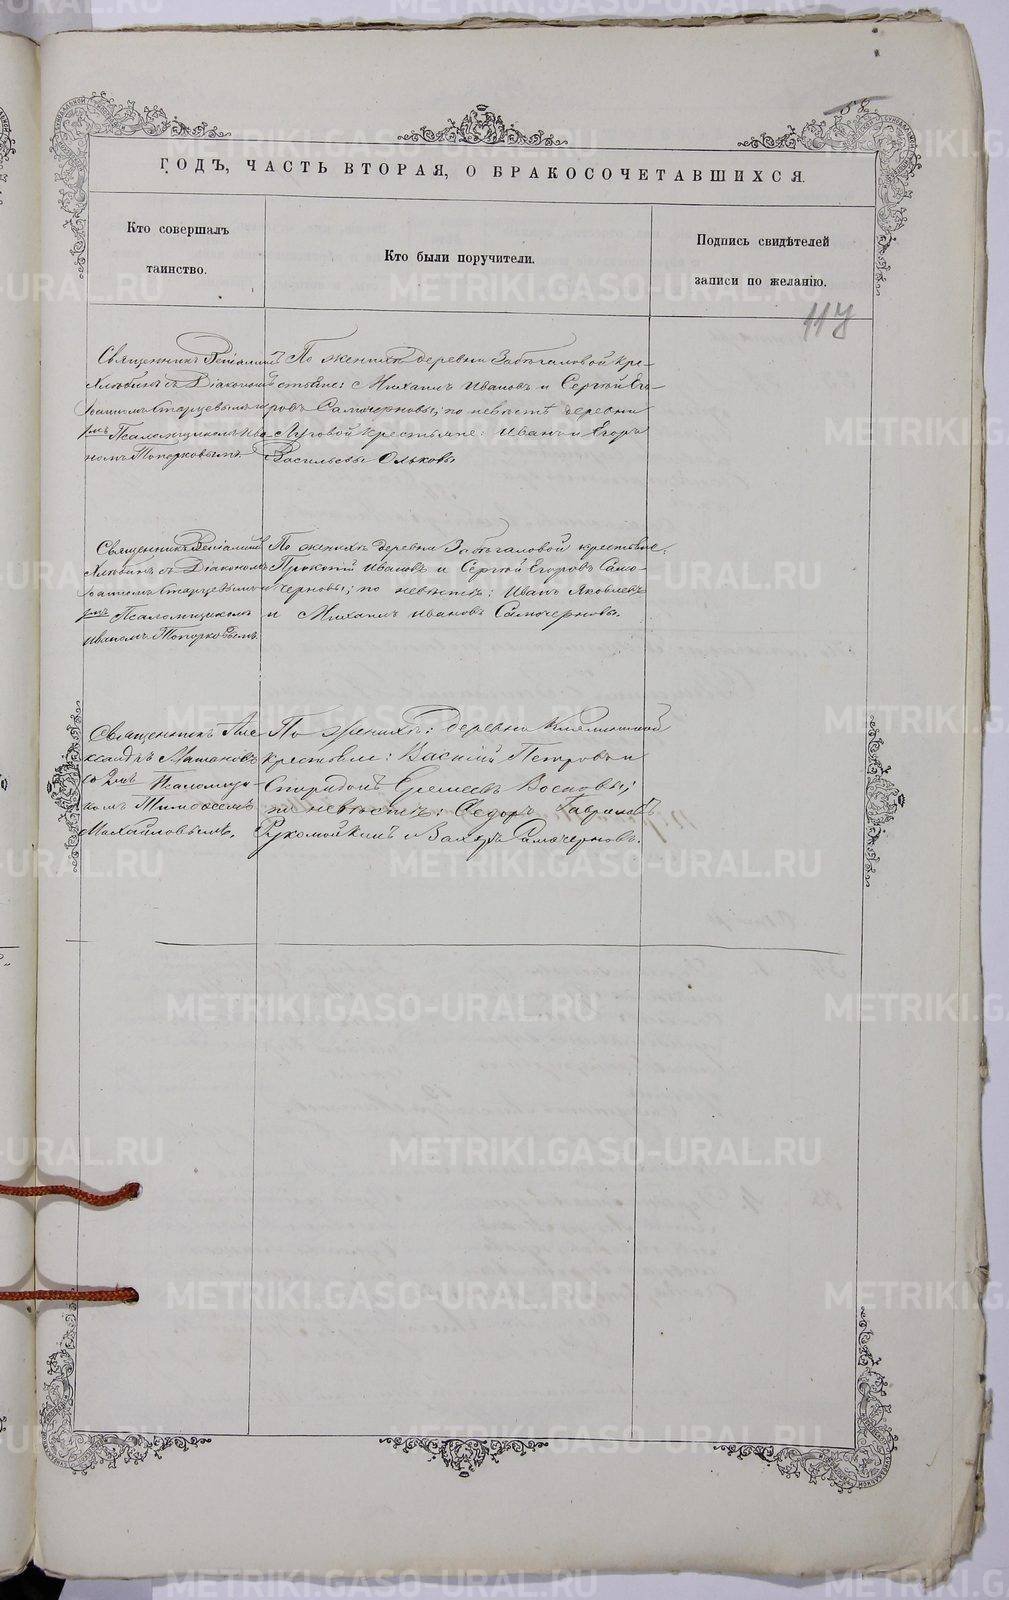 58
ГОДЪ, ЧАСТЬ ВТОРАЯ, О БРАКОСОЧЕТАВШИХСЯ.
Кто совершалъ
таинство.
Кто были поручители.
Подпись свидѣтелей
записи по желанію.
117
Священникъ Веніаминъ
Хлѣбинъ съ Діакономъ
Старцевымъ и
Псаломщикомъ Ива-
номъ Топорковымъ.
По женихѣ деревни Забѣгаловой кре-
стьяне: Михаилъ Ивановъ и Сергѣй Его-
ровъ Самочерновы; по невѣстѣ деревни
Луговой крестьяне: Иванъ и Егоръ
Васильевы Ольковы
Священникъ Веніаминъ
Хлѣбинъ съ Діакономъ
Старцевымъ и
Псаломщикомъ
Иваномъ Топорковымъ.
По женихѣ деревни Забѣгаловой крестьяне:
Прокопій Ивановъ и Сергѣй Егоровъ Само-
черновы; по невѣстѣ: Иванъ Яковлевъ
и Михаилъ Ивановъ Самочерновы.
Священникъ Але-
ксандръ
съ Псаломщи-
комъ Тимофеемъ
Михайловымъ.
По женихѣ: деревни
крестьяне: Василій Петровъ и
Спиридонъ Елисеевъ
по невѣстѣ: Ѳедоръ Гавриловъ
Рукомойкинъ и Захаръ Самочерновъ.
METRIKI.GASO-URAL.RU